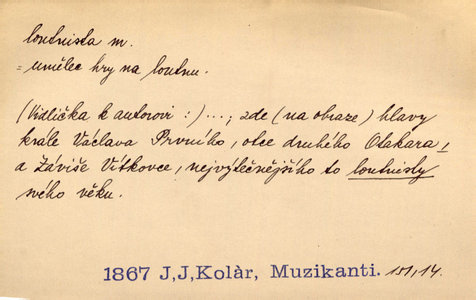 loutnista m.
= umělec hry na loutnu.
(Vidlička k autorovi :) ...; zde (na obraze) hlavy
krále Václava Prvního, otce druhého Otakara,
a Záviše Vítkovce, nejvýtečnějšího to loutnisty
svého věku.
1867 J,J,Kolàr, Muzikanti. 151, 14.